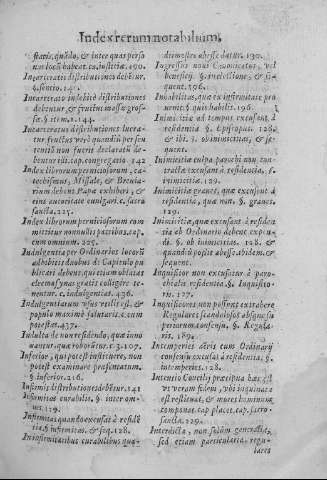 Index rerum notabilium.
statis, quādo, & inter quas perso
nas locū habeat. ca. iustitiæ. 190.
Incarceratis distributiones debētur.
§. sontio. 141.
Incarcerato iniustè distributiones
debentur, & fructus grossæ grossæ.
§. item. 2. 144.
Incarceratus distributiones lucratur
fructus verò quandiu per sententiā
non fuerit declaratū debentur
illi. cap. congregatio. 142
Index librorum perniciosorum, catechismus,
Missale, & Breuiarium
debens Papæ exhiberi, &
eius auctoritate euulgari. c. sacrosancta.
225.
Index librorum perniciosorum committitur
nonnullis patribus. cap.
cum omnium. 225.
Indulgentia per Ordinarios locorū
adhibitis duobus di Capitulo publicari
debent. qui etiam oblatas
eleemosynas gratis colligere tenentur.
c. indulgentias. 436.
Indulgentiarum vsus vtilis est, &
populo maximè salutaris. c. cum
potestas. 437.
Indulta de non residendo, quæ inno
uantur, quæ roborātur. c. 3. 107.
Inferior, qui potest instituere, non
potest examinare præsentatum.
§. inferior. 216.
Infirmis distributiones debētur. 141
Infirmitas curabilis. §. inter omnes.
119.
Infirmitas quando excuset à residē
tia. § infirmitas. & seq. 128.
In infirmitatibus curabilibus qua-
drimestre abesse datur. 130.
Ingressus noui Canonicatus, vel
beneficij. §. successione, & sequent.
396.
Inhabilitas, quæ ex infirmitate prouenit.
§. quis habilis. 196.
Inimicitia ad tempus excusant à
residentia §. Episcopus. 126.
& ibi. §. ob inimicitias, & sequent.
Inimicitia culpa parochi non contracta
excusant à residentia. §.
inimicitia. 129.
Inimicitia graues, quæ excusent à
residentia, quæ non. §. graues.
129.
Inimicitia, quæ excusent à residentia
ab Ordinario debent expendi.
§. ob inimicitias. 128. &
quandiu possit abesse. ibidem. &
sequent.
Inquisitor non excusatur à parochialis
residentia. §. Inquisitoris.
127.
Inquisitores non possunt extrahere
Regulares scandalosos absque superiorum
consensu. §. Regularis.
189.
Intemperies aëris cum Ordinarij
consensu excusat à residentia. §.
intemperies. 128.
Intentio Concilij præcipua hæc est
vt verum fidem, vbi inquinata
est restituat, & mores hominum
componat. cap. placet. cap. sacrosancta.
129.
Interdicta, non solùm generalia,
sed etiam particularia, regu-
lares